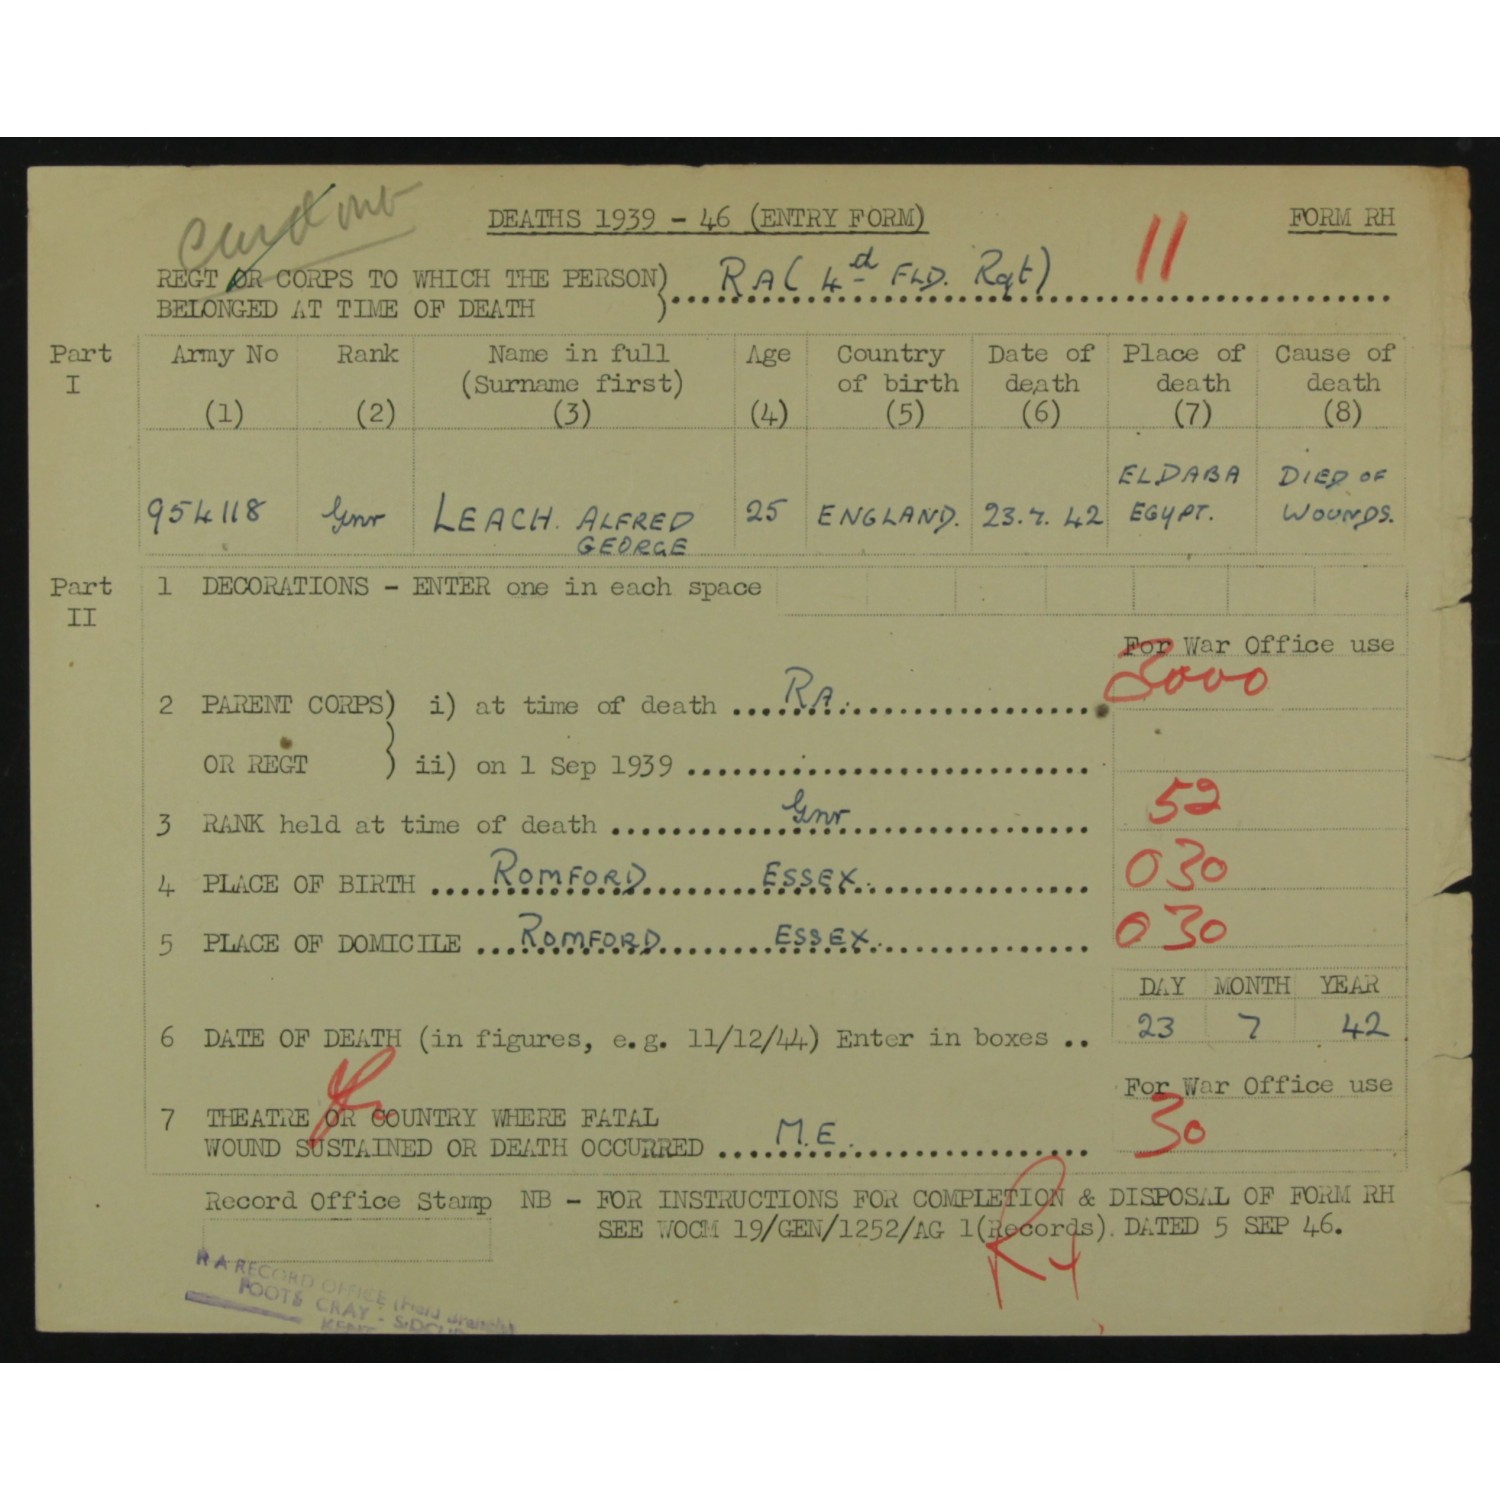 DEATHS 1939 - 46 (ENTRY FORM)
FORM RH
11
REGT OR CORPS TO WHICH THE PERSON)
BELONGED AT TIME OF DEATH )
RA ( 4d FLD. Rgt)
Part
I
Army No Rank Name in full Age Country Date of Place of Cause of
(Surname first) of birth death death death
(1) (2) (3) (4) (5) (6) (7) (8)
954118 Gnr LEACH. ALFRED GEORGE 25 ENGLAND. 23.7.42 ELDABA EGYPT. DIED OF WOUNDS.
Part
II
1 DECORATIONS - ENTER one in each space
For War Office use
2 PARENT CORPS) i) at time of death RA. 3000
OR REGT ) ii) on 1 Sep 1939
3 RANK held at time of death Gnr 52
4 PLACE OF BIRTH ROMFORD ESSEX. 030
5 PLACE OF DOMICILE ROMFORD ESSEX. 030
DAY MONTH YEAR
6 DATE OF DEATH (in figures, e.g. 11/12/44) Enter in boxes .. 23 7 42
For War Office use
7 THEATRE OR COUNTRY WHERE FATAL
WOUND SUSTAINED OR DEATH OCCURRED M.E. 30
Record Office Stamp NB - FOR INSTRUCTIONS FOR COMPLETION & DISPOSAL OF FORM RH
SEE WOCM 19/GEN/1252/AG 1(Records). DATED 5 SEP 46.
R A RECORD OFFICE (Field Branch)
FOOTS CRAY - SIDCUP
KENT